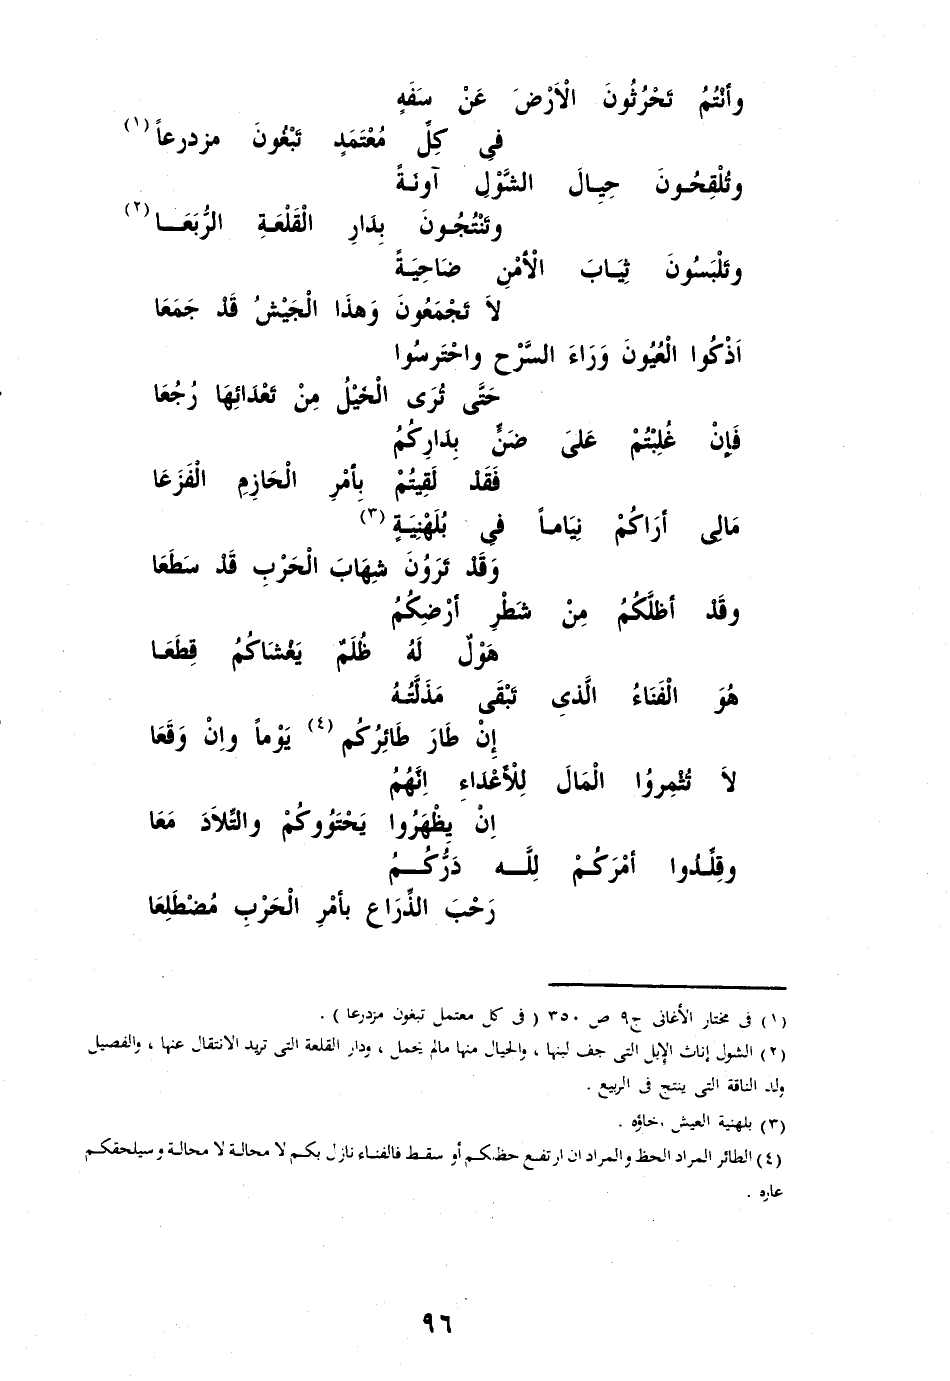 وأَنْتُمُ تَحْرُثُونَ الْأَرْضَ عَنْ سَفَهٍ
فِي كِلِّ مُعْتَمَدٍ تَبْغُونَ مزدرعاً (١)
وتُلْقِحُونَ حِيالَ الشَّوْلِ آونَةً
وتَنْتُجُونَ بِدَارِ الْقَلْعَةِ الرُّبَعَا (٢)
وتَلْبَسُونَ ثِيَابَ الْأمْنِ ضَاحِيَةً
لاَ تَجْمَعُونَ وَهذَا الْجَيْشُ قَدْ جَمَعَا
اَذْكُوا الْعُيُونَ وَرَاءَ السَّرْحِ واحْتَرِسُوا
حَتَّى تُرَى الْخَيْلُ مِنْ تَعْدَائِهَا رُجُعَا
فَإنْ غُلِبْتُمْ عَلىَ ضَنٍّ بِدَارِكُمُ
فَقَدْ لَقِيتُمْ بِأمْرِ الْحَازِمِ الْفَزَعَا
مَالِي أرَاكُمْ نِيَاماً فِي بُلَهْنِيَةٍ (٣)
وَقَدْ تَرَوْنَ شِهَابَ الْحَرْبِ قَدْ سَطَعَا
وقَدْ أظلَّكُمُ مِنْ شَطْرِ أرْضِكُمُ
هَوْلٌ لَهُ ظُلَمٌ يَغْشَاكُمُ قِطَعَا
هُوَ الْفَنَاءُ الَّذِي تَبْقَى مَذَلَّتُهُ
إِنْ طَارَ طَائِرُكُم (٤) يَوْماً واِنْ وَقَعَا
لاَ تُثْمِروُا الْمَالَ لِلْأَعْدَاءِ اِنَّهُمُ
اِنْ يِظْهَرُوا يَحْتَوُوكُمْ والتِّلاَدَ مَعَا
وقِلِّدُوا أمْرَكُمْ لِلَّه دَرُّكُمُ
رَحْبَ الذِّرَاعِ بأمْرِ الْحَرْبِ مُضْطَلِعَا
(١) فى مختار الأغانى ج٩ ص ٣٥٠ ( فى كل معتمل تبغون مزدرعا ) .
(٢) الشول إناث الإبل التى جف لبنها ، والحيال منها مالم يحمل ، ودار القلعة التى تريد الانتقال عنها ، والفصيل
ولد الناقة التى ينتج فى الربيع .
(٣) بلهنية العيش رخاؤه .
(٤) الطائر المراد الحظ والمراد ان ارتفع حظكم أو سقط فالفناء نازل بكم لا محالة لا محالة وسيلحقكم
عاره .
٩٦